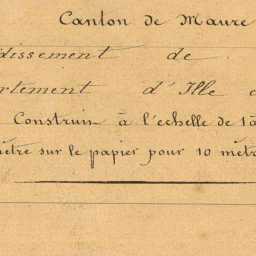 Canton de Maure
dissement de
rtement d'Ille
Construit à l'echelle de 1
mètre sur le papier pour 10 mètr